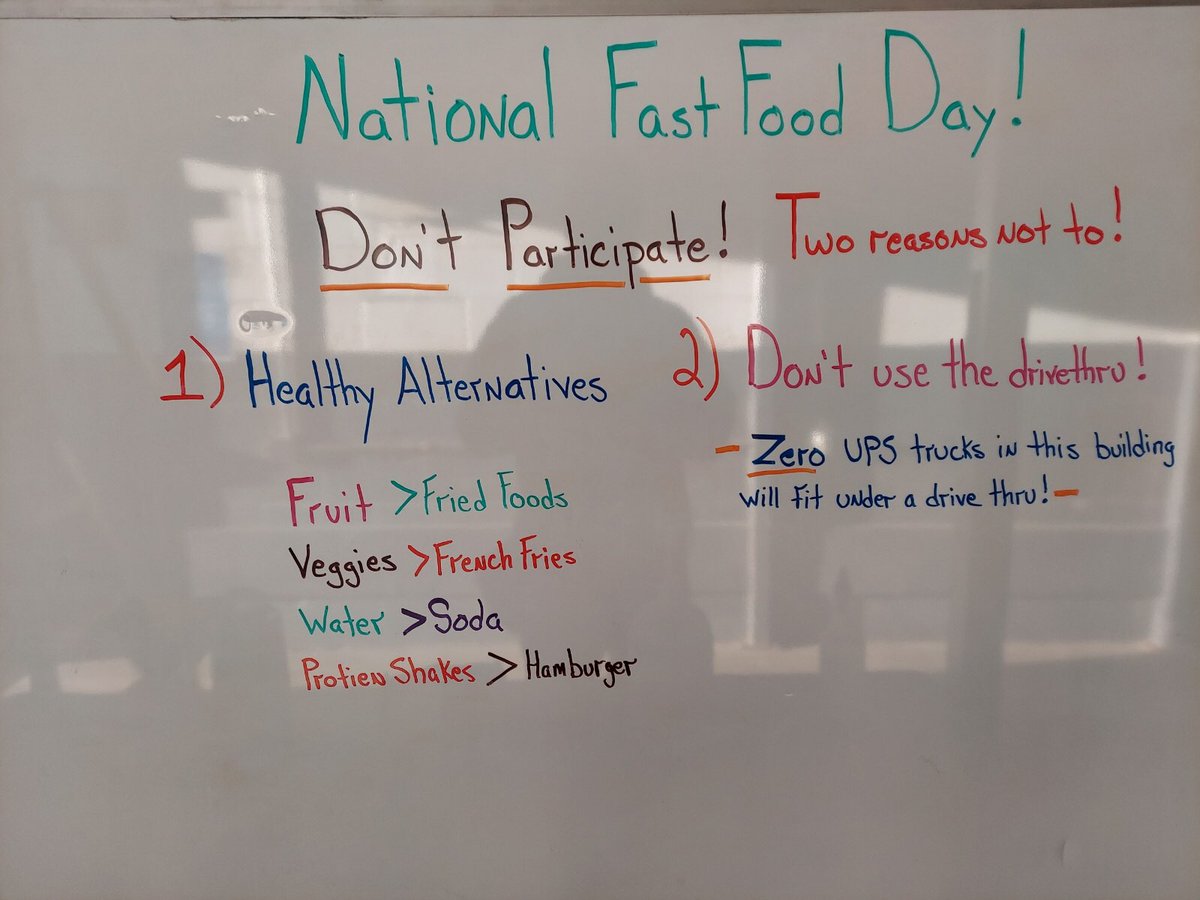 National Fast Food Day!
Don't Participate! Two reasons not to!
1) Healthy Alternatives
Fruit > Fried Foods
Veggies > French Fries
Water > Soda
Protien Shakes > Hamburger
2) Don't use the drivethru!
- Zero UPS trucks in this building
will fit under a drive thru! -